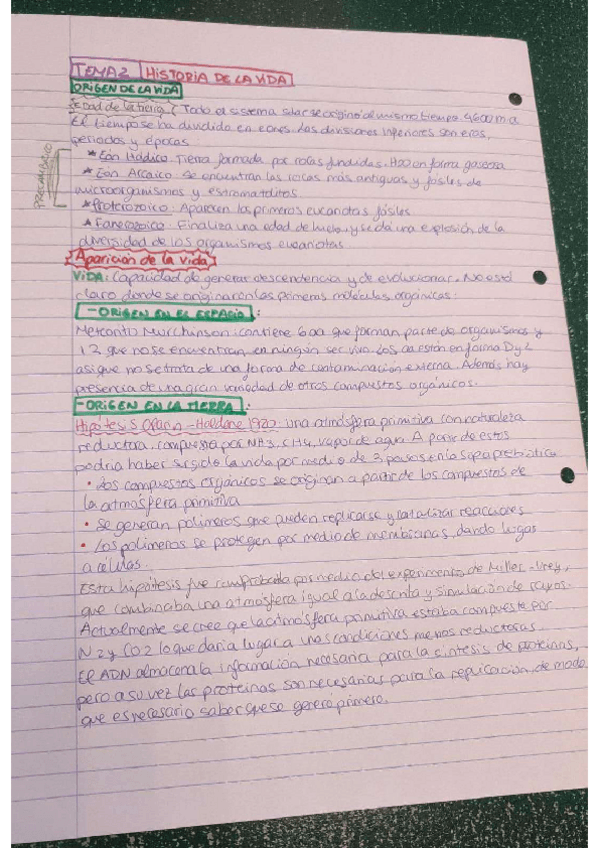 TEMA 2 HISTORIA DE LA VIDA
ORIGEN DE LA VIDA
Edad de la tierra: Todo el sistema solar se originó al mismo tiempo. 4600 m.a
El tiempo se ha dividido en eones. Las divisiones inferiores son eras,
periodos y épocas
PRECAMBRICO
* Eón Hádico: Tierra formada por rocas fundidas. H2O en forma gaseosa
* Eón Arcaico: Se encuentran las rocas más antiguas y fósiles de
microorganismos y estromatolitos
* Proterozoico: Aparecen los primeros eucariotas fósiles
* Fanerozoico: Finaliza una edad de hielo y se da una explosión de la
diversidad de los organismos eucariotas
Aparición de la vida
VIDA: Capacidad de generar descendencia y de evolucionar. No está
claro donde se originaron las primeras moléculas orgánicas:
- ORIGEN EN EL ESPACIO:
Meteorito Murchinson: contiene 6 aa que forman parte de organismos y
12 que no se encuentran en ningún ser vivo. Los aa están en forma D y L
asi que no se trata de una forma de contaminación externa. Además, hay
presencia de una gran variedad de otros compuestos orgánicos.
- ORIGEN EN LA TIERRA:
Hipótesis Oparin - Haldane 1920: una atmósfera primitiva con naturaleza
reductora, compuesta por NH3, CH4, vapor de agua. A partir de estos
podría haber surgido la vida por medio de 3 pasos en la sopa prebiótica
• Los compuestos orgánicos se originan a partir de los compuestos de
la atmósfera primitiva
• Se generan polímeros que pueden replicarse y catalizar reacciones
• Los polímeros se protegen por medio de membranas, dando lugar
a células.
Esta hipótesis fue comprobada por medio del experimento de Miller-Urey,
que combinaba una atmósfera igual a la descrita y simulación de rayos.
Actualmente se cree que la atmósfera primitiva estaba compuesta por
N2 y CO2 lo que daría lugar a unas condiciones menos reductoras
El ADN almacena la información necesaria para la síntesis de proteínas,
pero a su vez las proteínas son necesarias para la replicación de modo
que es necesario saber que se generó primero.